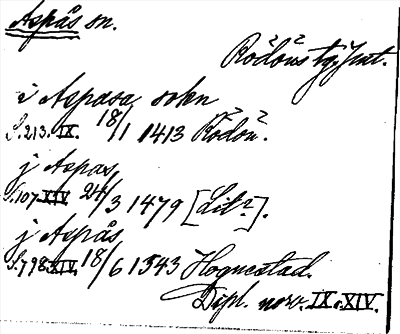 Aspås sn.
Rödöns tg, Jmt.
i Aspasa sokn
S. 213. IX. 18/1 1413 Rödön.
j Aspas,
S. 107. XIV 24/3 1479 [Lit?].
j Aspås
S. 798. XIV. 18/6 1543 Hognestad.
Dipl. norv. IX. XIV.